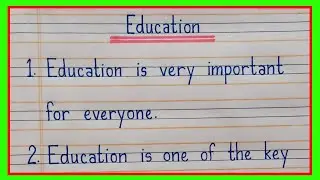 Education
1. Education is very important
for everyone.
2. Education is one of the key